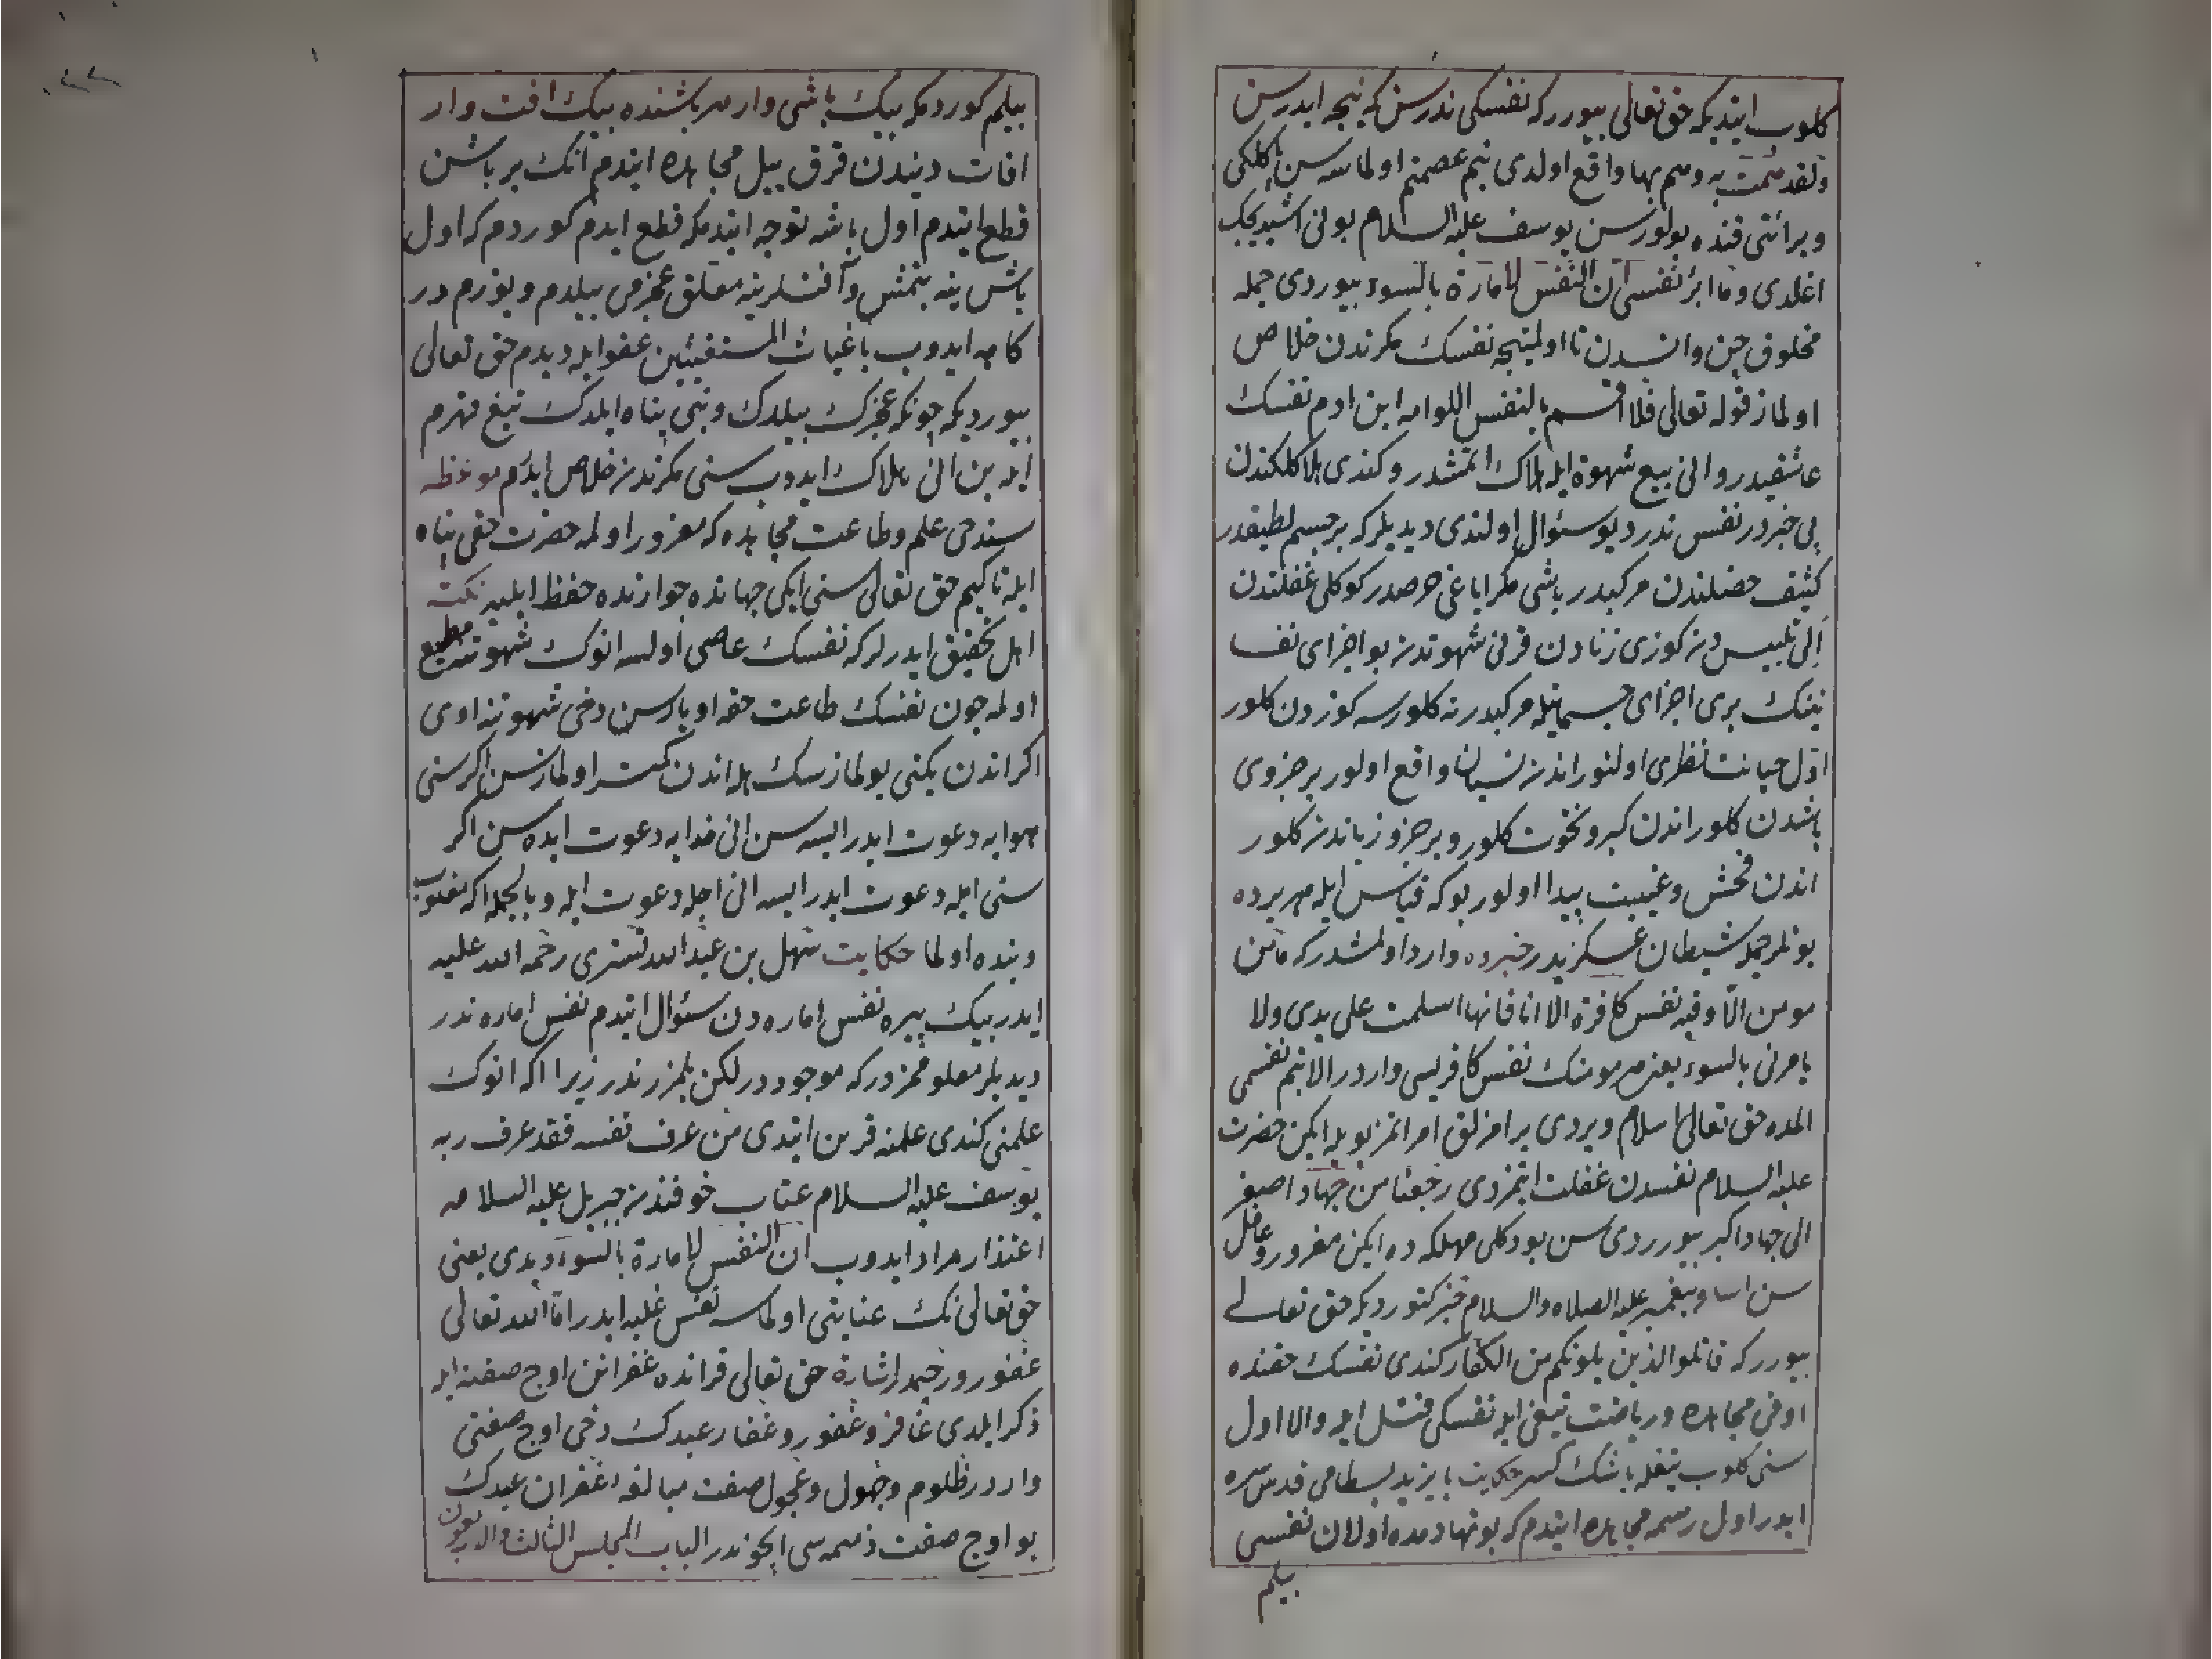 كلوب ايتديكه حق تعالى بيوررکه نفسكى ندرسن که نيجه ايدرسن
ولقد همت به وهم بها واقع اولدى بنم عصمتم اولماسه سن پاكلكى
وبرائتى قنده بولورسن يوسف عليه السلام بونى اشيديجك
اغلدى وما ابرئ نفسى ان النفس لامارة بالسوء بيوردى جمله
مخلوق جن وانسدن تا اولمينجه نفسك مكرندن خلاص
اولماز قوله تعالى فلا اقسم بالنفس اللوامه ابن ادم نفسك
عاشقيدر وانى بيع شهوة ايله هلاك ايتمشدر وكندى هلاكلكندن
بى خبردر نفس ندر ديو سئوال اولندى ديديلركه بر جسم لطيفدر
كثيف خصلندن مركبدر باشى مكر اياغى حرصدر كوكلى غفلتدن
الى تلبيسدن كوزى زنادن قرنى شهوتدن بو اجزاى نفسا
نينك برى اجزاى جسمانيله مركبدر نه كلورسه كوزدن كلور
اول خيانت نظرى اولنور اندن نسيان واقع اولور بر جزوى
باشدن كلور اندن كبر ونخوت كلور وبر جزو زباندن كلور
اندن فحش وغيبت پيدا اولور بوكه قياس ايله هر يرده
بونلر جمله شيطان عسكريدر خبرده وارد اولمشدركه مامن
مومن الا وفيه نفس كافرة الا انا فانها اسلمت على يدى ولا
يامرنى بالسوء يعنى هر مومنك نفس كافرسى واردر الا بنم نفسمى
المده حق تعالى اسلام ويردى يرامزلق امر اتمز بويله ايكن حضرت
عليه السلام نفسدن غفلت ايتمزدى رجعنا من جهاد اصغر
الى جهاد اكبر بيورردى سن بودكلى مهلكه ده ايكن مغرور وغافل
سن اسا وپيغمبر عليه الصلاه والسلام خبر كتورديكه حق تعالى
بيوررکه قاتلوا الذين يلونكم من الكفار كندى نفسك حقنده
اوقى مجاهده ورياضت تيغى ايله نفسكى قتل ايله والا اول
سنى كلوب تيغله باشك كسر حكايت بايزيد بسطامى قدس سره
ايدر اول رسمه مجاهده ايتدم كه بو نهادمده اولان نفسى
بيلم
بيلم كوردمكه بيك باشى وار هر باشنده بيك افت وار
افات ديندن قرق ييل مجاهده ايتدم انك بر باشن
قطع ايتدم اول باشه توجه ايتدمكه قطع ايدم كوردم كه اول
باش ينه بتمش وافتلرينه معلق عجزمى بيلدم ويوزم در
كاهه ايدوب يا غياث المستغيثين عفو ايله ديدم حق تعالى
بيورديكه چونكه عجزك بيلدك وبنى پناه ايلدك تيغ قهرم
ايله بن انى هلاك ايدوب سنى مكرندن خلاص ايدرم موعظه
سندخى علم وطاعت مجاهده كه مغرور اولمه حضرت حقى پناه
ايله تا كيم حق تعالى سنى ايكى جهانده جوارنده حفظ ايليه نكته
اهل تحقيق ايدرلركه نفسك عاصى اولسه انوك شهوتنه مطيع
اولمه چون نفسك طاعت حقه اويارسن دخى شهوتنه اوى
اكر اندن يكنى بولمازسك هله اندن كمتر اولمازسن اكر سنى
هوايه دعوت ايدرايسه سن انى خدايه دعوت ايده سن اكر
سنى امله دعوت ايدرايسه انى اجله دعوت ايله وبالجمله اكه مغلوب
وبنده اولما حكايت سهل بن عبد الله تسترى رحمة الله عليه
ايدر بيك پيره نفس اماره دن سئوال ايتدم نفس اماره ندر
ديديلر معلوممزدركه موجوددر لكن بلمزز ندر زيرا كه انوك
علمنى كندى علمنه قرين ايتدى من عرف نفسه فقد عرف ربه
يوسف عليه السلام عتاب خوفندن جبريل عليه السلامه
اعتذار مراد ايدوب ان النفس لامارة بالسوء ديدى يعنى
حق تعالى نك عنايتى اولماسه نفس غلبه ايدر اما الله تعالى
غفور ورحيمدر اشارة حق تعالى قرانده غفرانن اوچ صفتنه ايله
ذكر ايلدى غافر وغفور وغفار عبدك دخى اوچ صفتى
واردر ظلوم وجهول وعجول صفت مبالغه غفران عبدك
بو اوچ صفت ذميمه سى ايچوندر الباب المجلس الثالث والاربعون